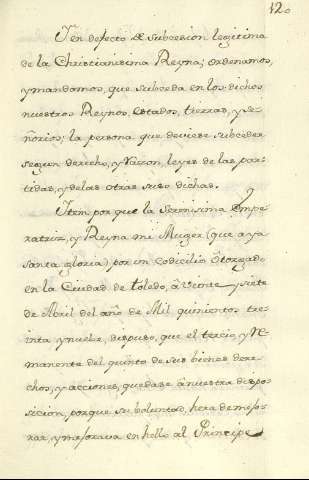 12.
Y en defecto de subcesion legitima
de la Christianisima Reyna; ordenamos,
y mandamos, que subceda en los dichos
nuestro Reynos, estados, tierras, y se-
ñorios; la persona que deviese subceder
segun derecho, y razon, leyes de las par-
tidas, y de las otras suso dichas.
Yten por que la Serenisima Empe-
ratriz, y Reyna mi Muger (que aya
santa gloria) por un Codicilio otorgado
en la Ciudad de toledo, à veinte y siete
de Abril del año de Mil, quinientos tre-
inta y nuebe, dispuso, que el tercio, y re-
manente del quinto de sus bienes dere-
chos, y acciones, quedase à nuestra dispo-
sicion, porque su boluntad, hera de mejo-
rar, y mejorava en hello al Principe